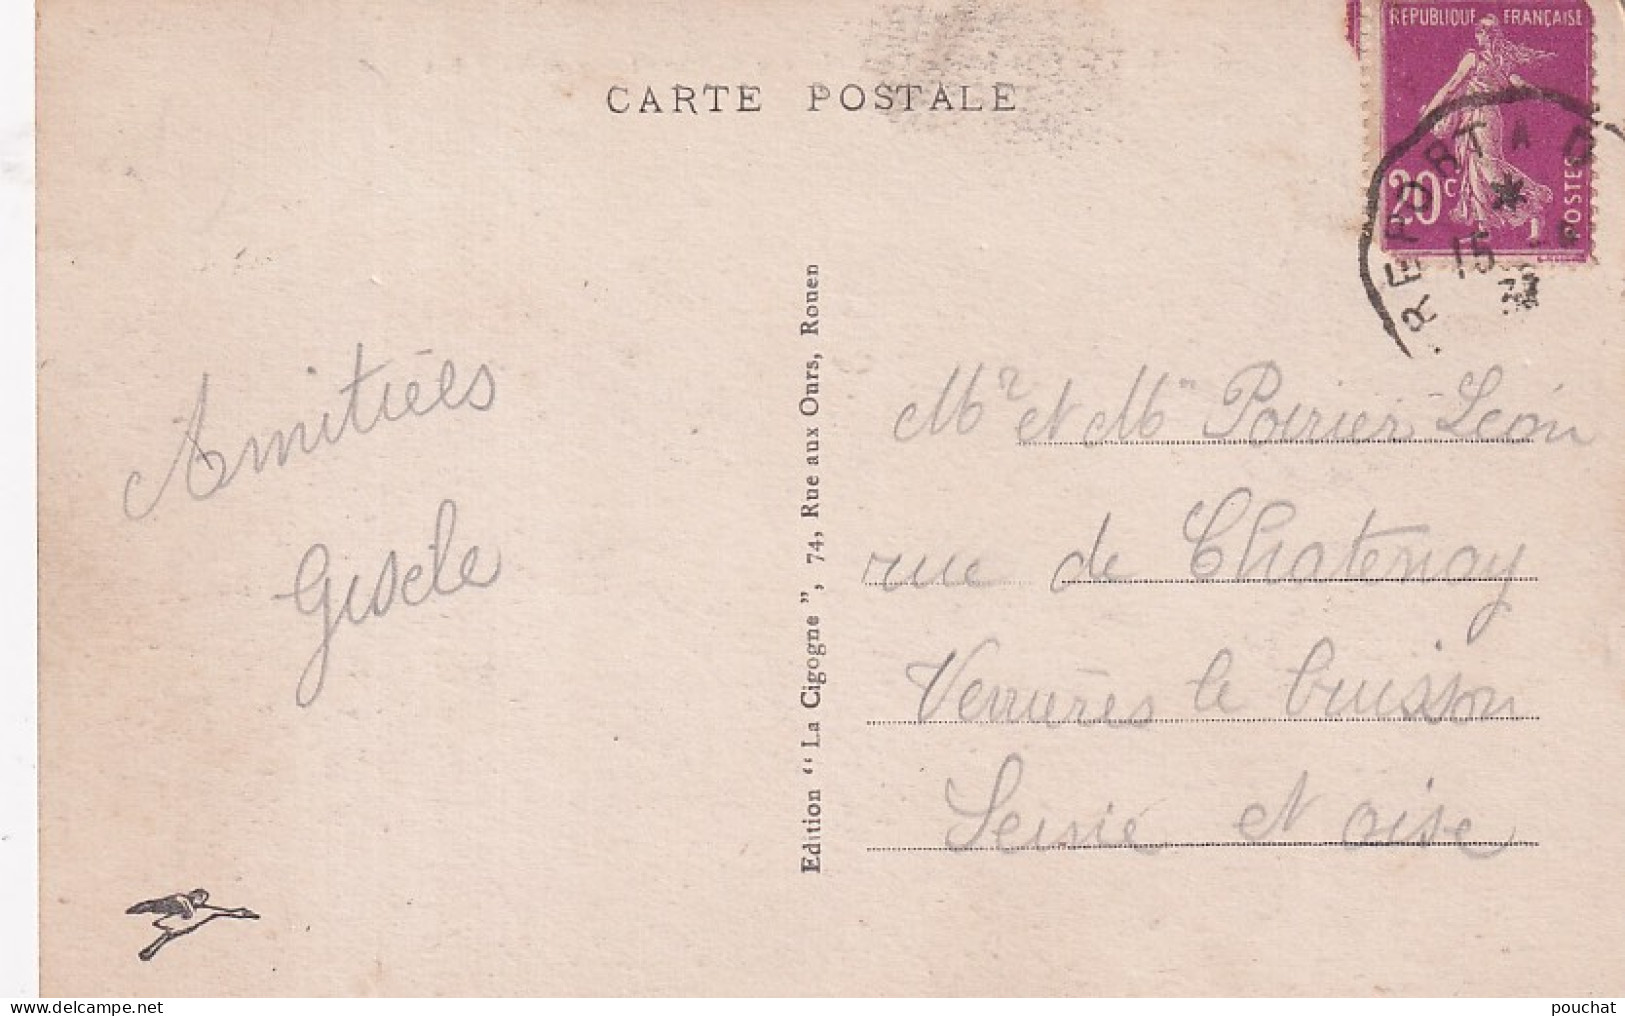 CARTE POSTALE
REPUBLIQUE FRANÇAISE
20c
POSTES
RE PORTA
15
Amitiés
Gisèle
Edition “ La Cigogne ”, 74, Rue aux Ours, Rouen
Mr et Mm Poirier Léon
rue de Chatenay
Verrières le buisson
Seisie et oise
delcampe.net
pouchat